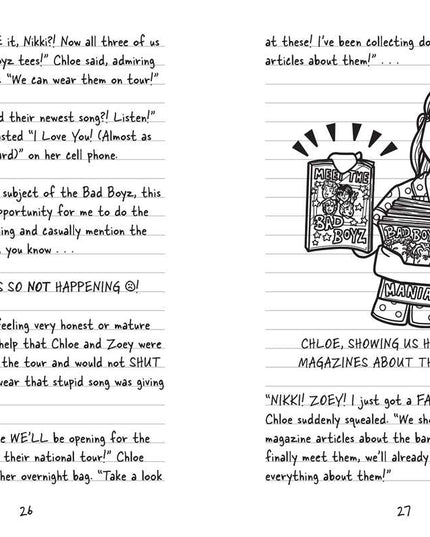 E it, Nikki?! Now all three of us
oyz tees!" Chloe said, admiring
. "We can wear them on tour!"
d their newest song?! Listen!"
sted "I Love You! (Almost as
ard)" on her cell phone.
subject of the Bad Boyz, this
pportunity for me to do the
ing and casually mention the
, you know . . .
S SO NOT HAPPENING ☹!
feeling very honest or mature
help that Chloe and Zoey were
the tour and would not SHUT
wear that stupid song was giving
e WE'LL be opening for the
their national tour!" Chloe
her overnight bag. "Take a look
26
at these! I've been collecting do
articles about them!" . . .
MEET THE
BAD
BOYZ
BAD BOY
MANIA
CHLOE, SHOWING US H
MAGAZINES ABOUT TH
"NIKKI! ZOEY! I just got a FA
Chloe suddenly squealed. "We sho
magazine articles about the ban
finally meet them, we'll already
everything about them!"
27